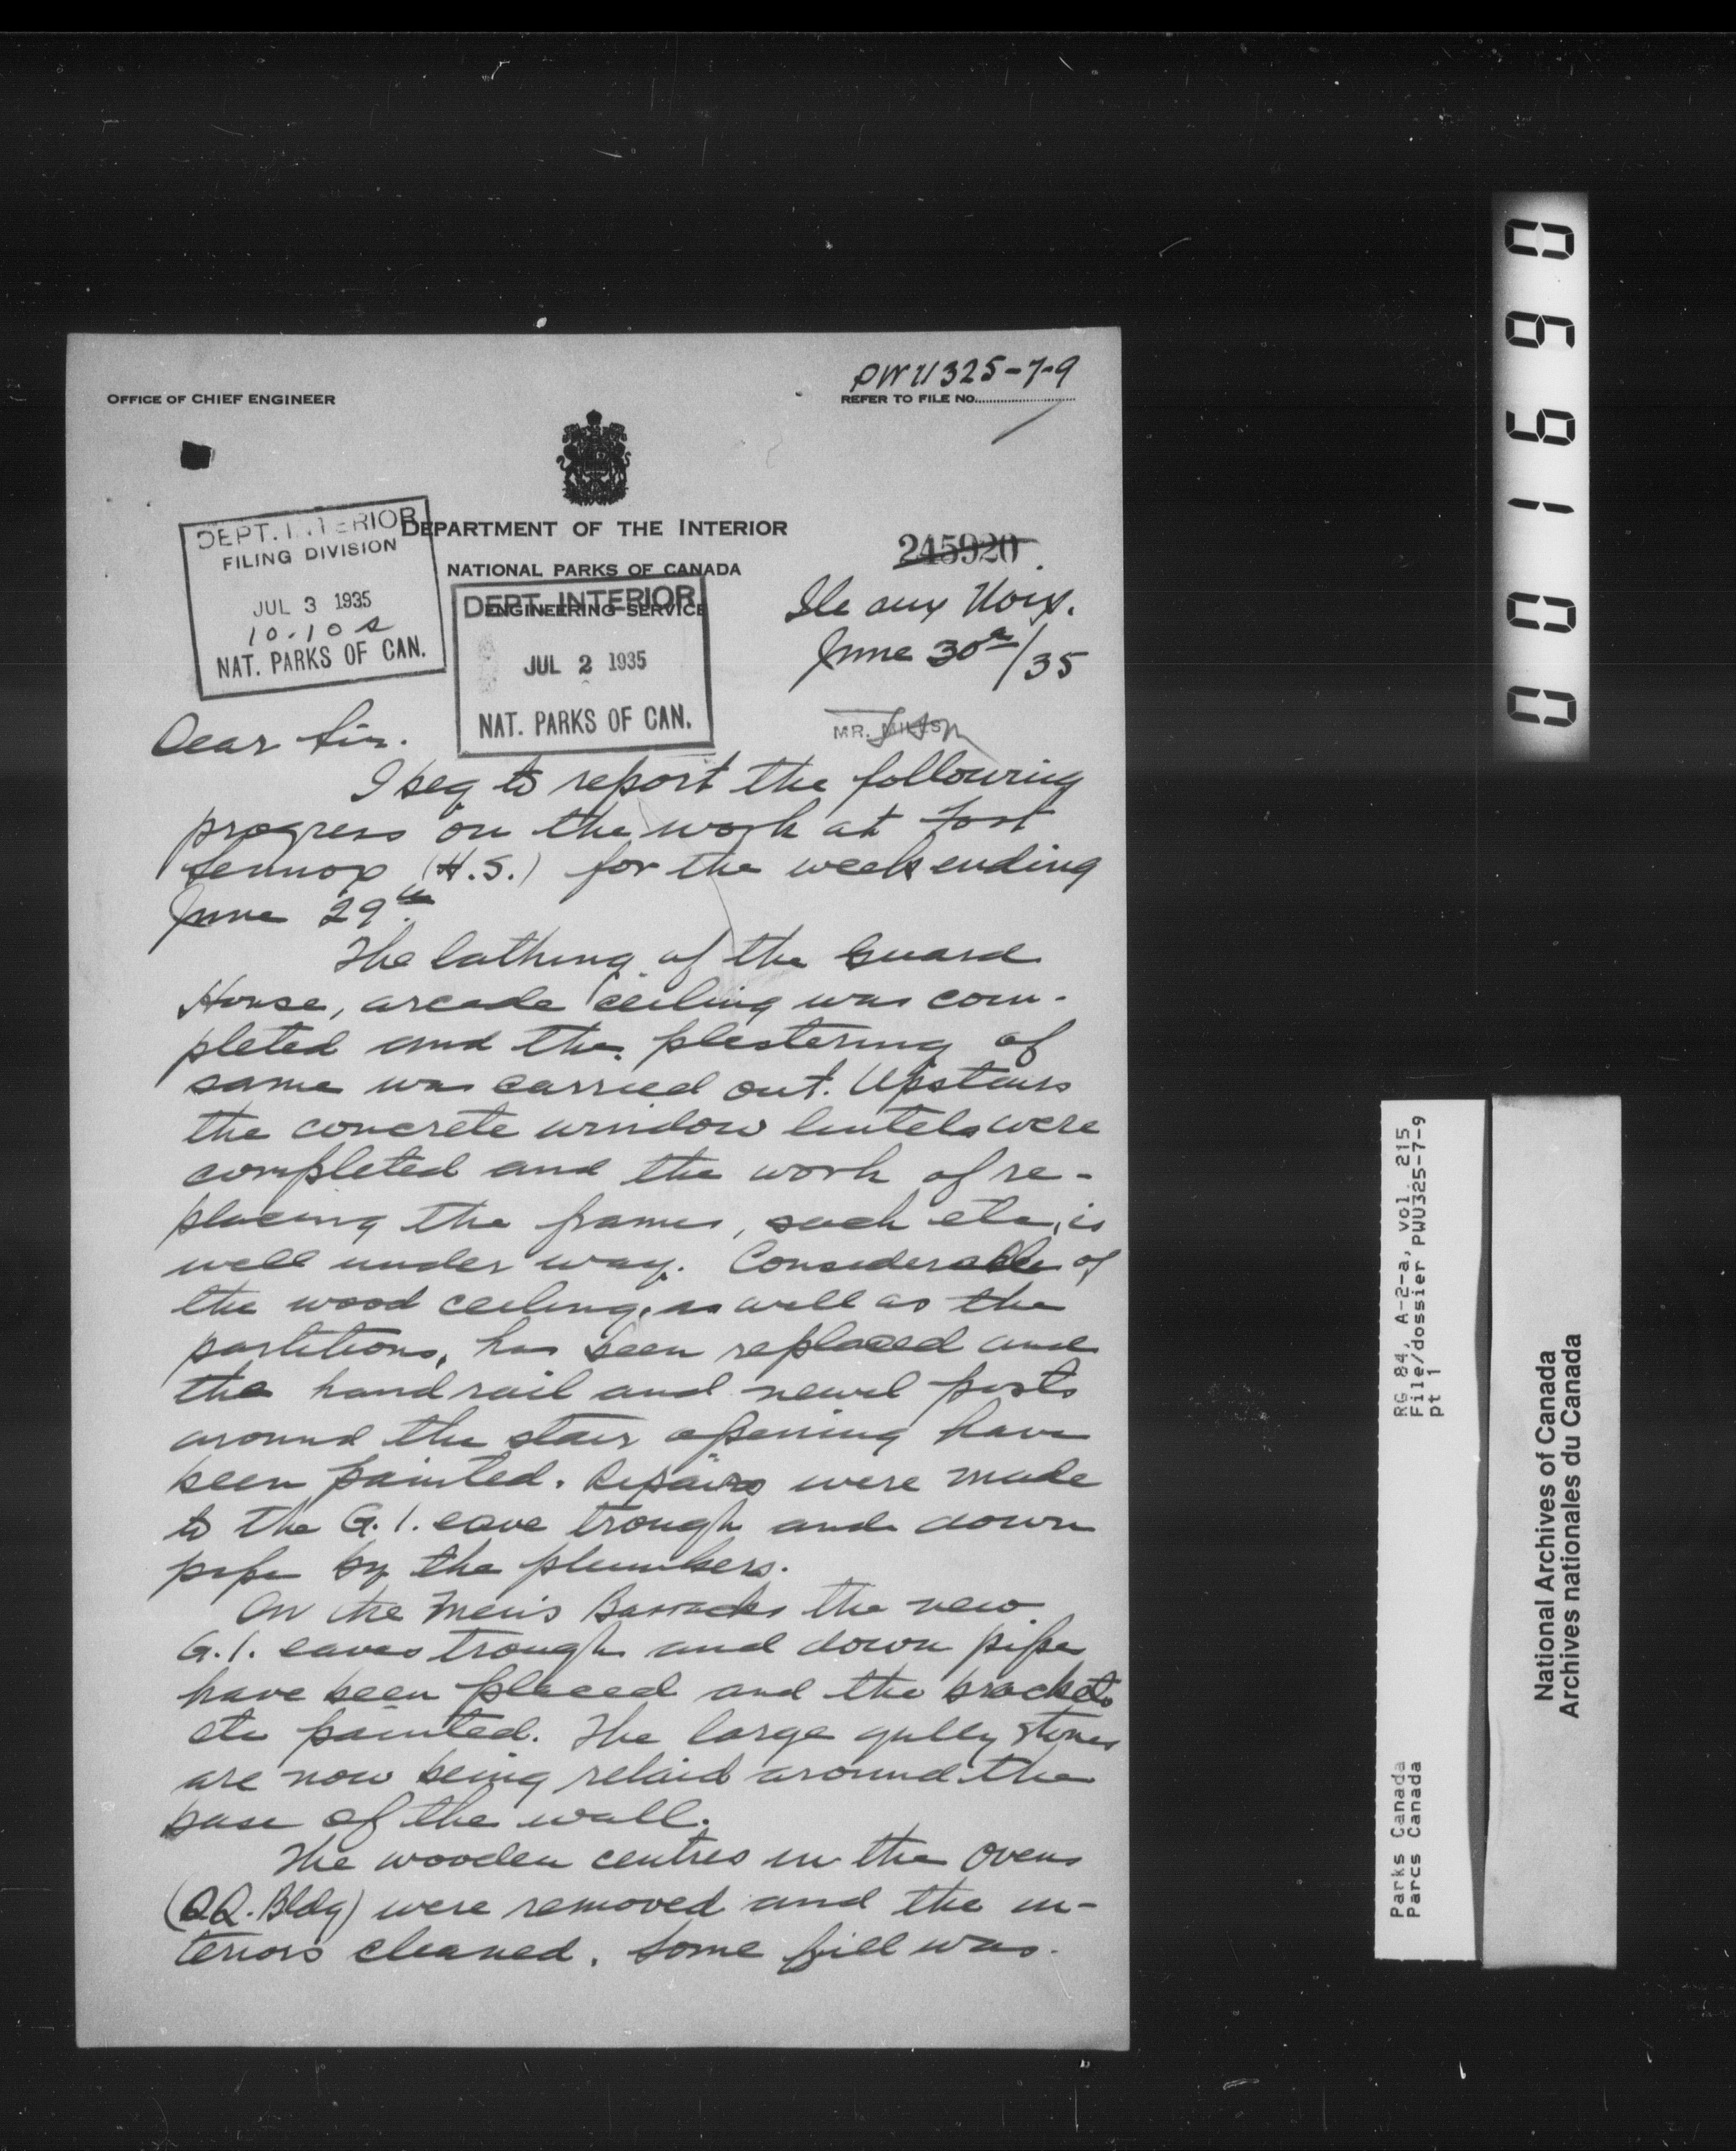 PWU325-7-9
OFFICE OF CHIEF ENGINEER
REFER TO FILE NO.
DEPARTMENT OF THE INTERIOR
NATIONAL PARKS OF CANADA
ENGINEERING SERVICE
DEPT. INTERIOR
FILING DIVISION
JUL 3 1935
10.10 a
NAT. PARKS OF CAN.
DEPT. INTERIOR
JUL 2 1935
NAT. PARKS OF CAN.
245920
Ile aux Noix.
June 30th/35
MR. MILLS
Dear Sir.
I beg to report the following
progress on the work at Fort
Lennox (H.S.) for the week ending
June 29th.
The lathing of the Guard
House, arcade ceiling was com-
pleted and the plastering of
same was carried out. Upstairs
the concrete window lintels were
completed and the work of re-
placing the frames, sash etc, is
well under way. Considerable of
the wood ceiling, as well as the
partitions, has been replaced and
the hand rail and newel posts
around the stair opening have
been painted. Repairs were made
to the G.I. eave trough and down
pipe by the plumbers.
On the Men's Barracks the new
G.I. eaves trough and down pipe
have been placed and the brackets
etc painted. The large gully stones
are now being relaid around the
base of the wall.
The wooden centres in the ovens
(Bldg) were removed and the in-
teriors cleaned. Some fill was
001690
RG 84, A-2-a, vol. 215
File/dossier PWU325-7-9
pt 1
Parks Canada
Parcs Canada
National Archives of Canada
Archives nationales du Canada